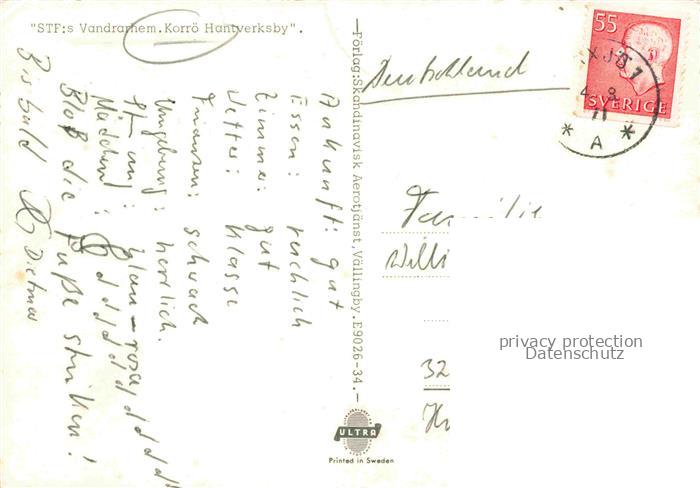 "STF:s Vandrarhem.Korrö Hantverksby".
Ankunft: gut
Essen: reichlich
Zimmer: gut
Wetter: Klasse
Finanzen: schwach
Umgebung: herrlich.
Stimmung: blau-rosa
Mädchen:
Bloß die Füße streiken!
Bis bald
Dietmar
—Förlag:Skandinavisk Aerotjänst,Vällingby.E9026-34.—
ULTRA
Printed in Sweden
Deutschland
55
SVERIGE
XJÖ 1
A
Familie
Willi
32
privacy protection
Datenschutz